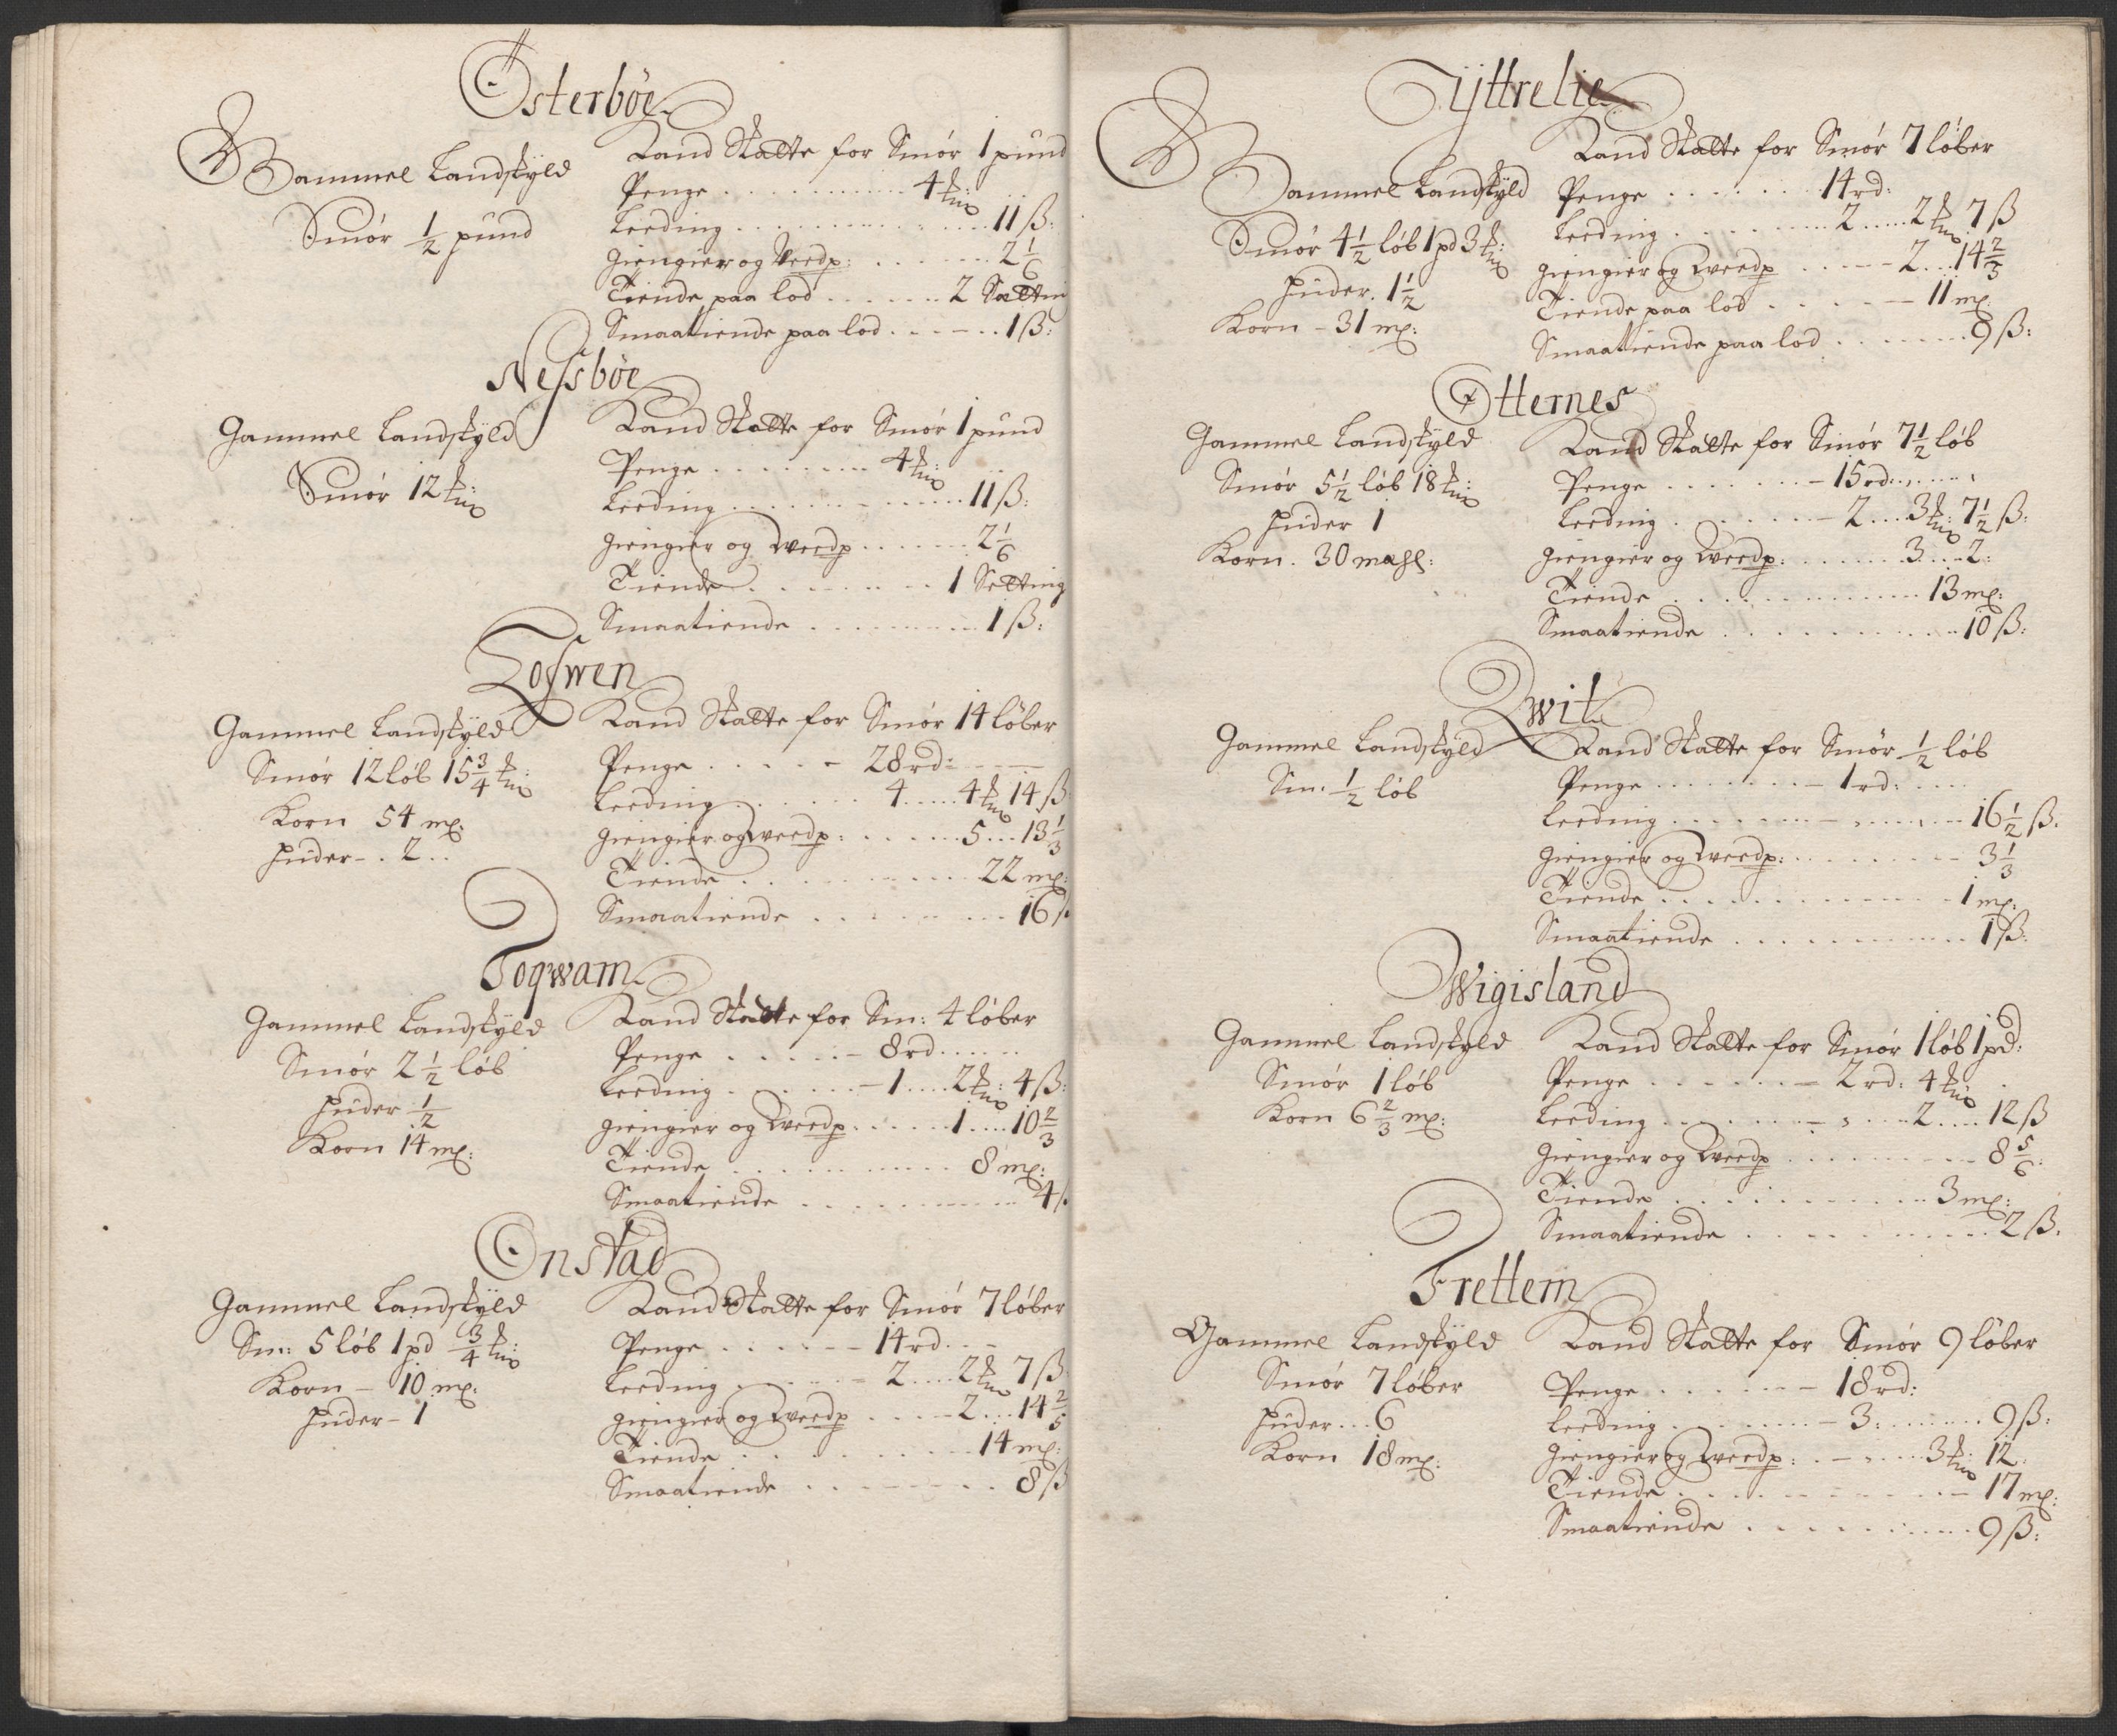 Österbøe
Gammel Landskyld
Smør 1/2 pund
Land Skatte for Smør 1 pund
Penge . . . . 4
Leeding . . . . 11 ß:
giengier og Weedp: . . . . 2 1/6
Tiende paa lod . . . . 2 Sætti
Smaatiende paa lod . . . . 1 ß:
Nessbøe
Gammel Landskyld
Smør 12
Land Skatte for Smør 1 pund
Penge . . . . 4
Leeding . . . . 11 ß:
giengier og Weedp . . . . 2 1/6
Tiende . . . . 1 Setting
Smaatiende . . . . 1 ß:
Gammel Landskyld
Smør 12 løb 15 3/4
Korn 54 mß:
Huder - . 2 . .
Land Skatte for Smør 14 løber
Penge . . . . 28 rd:
Leeding . . . . 4 . . . . 4 14 ß
giengier og weedp: . . . . 5 . . . 13 1/3
Tiende . . . . 22 mß:
Smaatiende . . . . 16 ß
Toqwam
Gammel Landskyld
Smør 2 1/2 løb
Huder 1/2
Korn 14 mß:
Land Skatte for Sm: 4 løber
Penge . . . . 8 rd . . . .
Leeding . . . . 1 . . . . 2 : 4 ß:
giengier og Weedp . . . . 1 . . . . 10 2/3
Tiende . . . . 8 mß:
Smaatiende . . . . 4 ß
Onstad
Gammel Landskyld
Sm: 5 løb 1 pd 3/4
Korn - 10 mß:
Huder - 1
Land Skatte for Smør 7 løber
Penge . . . . 14 rd . . .
Leeding . . . . 2 . . . . 2 7 ß
giengier og weedp . . . . 2 . . . 14 2/3
Tiende . . . . 14 mß:
Smaatiende . . . . 8 ß
Ÿttrelie
Gammel Landskyld
Smør 4 1/2 løb 1 pd 3
Huder. 1 1/2
Korn - 31 mß:
Land Skatte for Smør 7 løber
Penge . . . . 14 rd:
Leeding . . . . 2 . . . . 2 7 ß
giengier og weedp . . . . 2 . . . 14 2/3
Tiende paa lod . . . . 11 mß:
Smaatiende paa lod . . . . 9 ß:
Otternes
Gammel Landskyld
Smør 5 1/2 løb 18
Huder 1
Korn. 30
Land Skatte for Smør 7 1/2 løb
Penge . . . . 15 rd: . . . .
Leeding . . . . 2 . . . . 3 : 7 1/2 ß:
giengier og Weedp: . . . . 3 . . . 2:
Tiende . . . . 13 mß:
Smaatiende . . . . 10 ß:
Qwit
Gammel Landskyld
Sm: 1/2 løb
Land Skatte for Smør 1/2 løb
Penge . . . . 1 rd: . . . .
Leeding . . . . 16 1/2 ß.
giengier og weedp: . . . . 3 1/3
Tiende . . . . 1 mß:
Smaatiende . . . . 1 ß:
Wigisland
Gammel Landskyld
Smør 1 løb
Korn 6 2/3 mß:
Land Skatte for Smør 1 løb 1 pd:
Penge . . . . 2 rd: 4
Leeding . . . . 2 . . . . 12 ß
giengier og Weedp . . . . 8 5/6:
Tiende . . . . 3 mß:
Smaatiende . . . . 2 ß.
Frettem
Gammel Landskyld
Smør 7 løber
Huder . . . 6
Korn 18 mß:
Land Skatte for Smør 9 løber
Penge . . . . 18 rd:
Leeding . . . . 3: . . . . 9 ß:
giengier og weedp: . . . . 3 : 12.
Tiende . . . . 17 mß:
Smaatiende . . . . 9 ß: